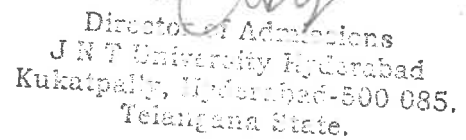 Director of Admissions
J N T University Hyderabad
Kukatpally, Hyderabad-500 085.
Telangana State.